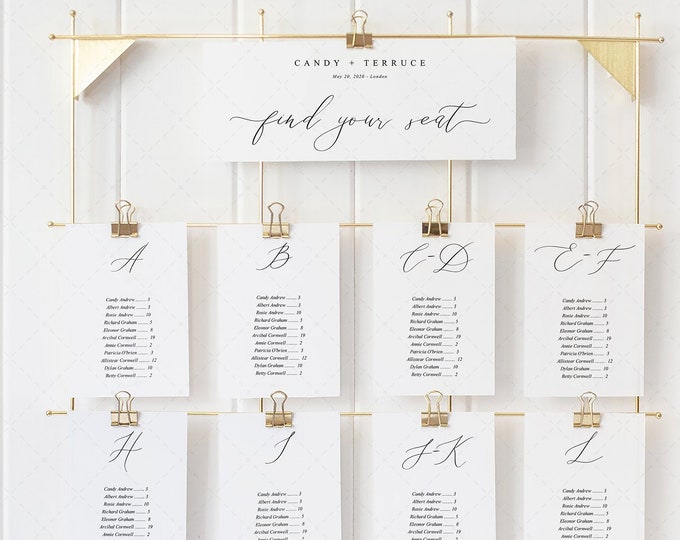 CANDY + TERRUCE
May 20, 2020 - London
find your seat
A
Candy Andrew ........ 3
Albert Andrew ........ 3
Rosie Andrew ........ 10
Richard Graham ........ 5
Eleonor Graham ........ 8
Arcibal Cornwell ........ 19
Annie Cornwell ........ 2
Patricia O'brien ........ 3
Allistear Cornwell ........ 12
Dylan Graham ........ 10
Betty Cornwell ........ 2
B
Candy Andrew ........ 3
Albert Andrew ........ 3
Rosie Andrew ........ 10
Richard Graham ........ 5
Eleonor Graham ........ 8
Arcibal Cornwell ........ 19
Annie Cornwell ........ 2
Patricia O'brien ........ 3
Allistear Cornwell ........ 12
Dylan Graham ........ 10
Betty Cornwell ........ 2
C-D
Candy Andrew ........ 3
Albert Andrew ........ 3
Rosie Andrew ........ 10
Richard Graham ........ 5
Eleonor Graham ........ 8
Arcibal Cornwell ........ 19
Annie Cornwell ........ 2
Patricia O'brien ........ 3
Allistear Cornwell ........ 12
Dylan Graham ........ 10
Betty Cornwell ........ 2
E-F
Candy Andrew ........ 3
Albert Andrew ........ 3
Rosie Andrew ........ 10
Richard Graham ........ 5
Eleonor Graham ........ 8
Arcibal Cornwell ........ 19
Annie Cornwell ........ 2
Patricia O'brien ........ 3
Allistear Cornwell ........ 12
Dylan Graham ........ 10
Betty Cornwell ........ 2
H
Candy Andrew ........ 3
Albert Andrew ........ 3
Rosie Andrew ........ 10
Richard Graham ........ 5
Eleonor Graham ........ 8
Arcibal Cornwell ........ 19
Annie Cornwell ........ 2
I
Candy Andrew ........ 3
Albert Andrew ........ 3
Rosie Andrew ........ 10
Richard Graham ........ 5
Eleonor Graham ........ 8
Arcibal Cornwell ........ 19
J-K
Candy Andrew ........ 3
Albert Andrew ........ 3
Rosie Andrew ........ 10
Richard Graham ........ 5
Eleonor Graham ........ 8
Arcibal Cornwell ........ 19
L
Candy Andrew ........ 3
Albert Andrew ........ 3
Rosie Andrew ........ 10
Richard Graham ........ 5
Eleonor Graham ........ 8
Arcibal Cornwell ........ 19